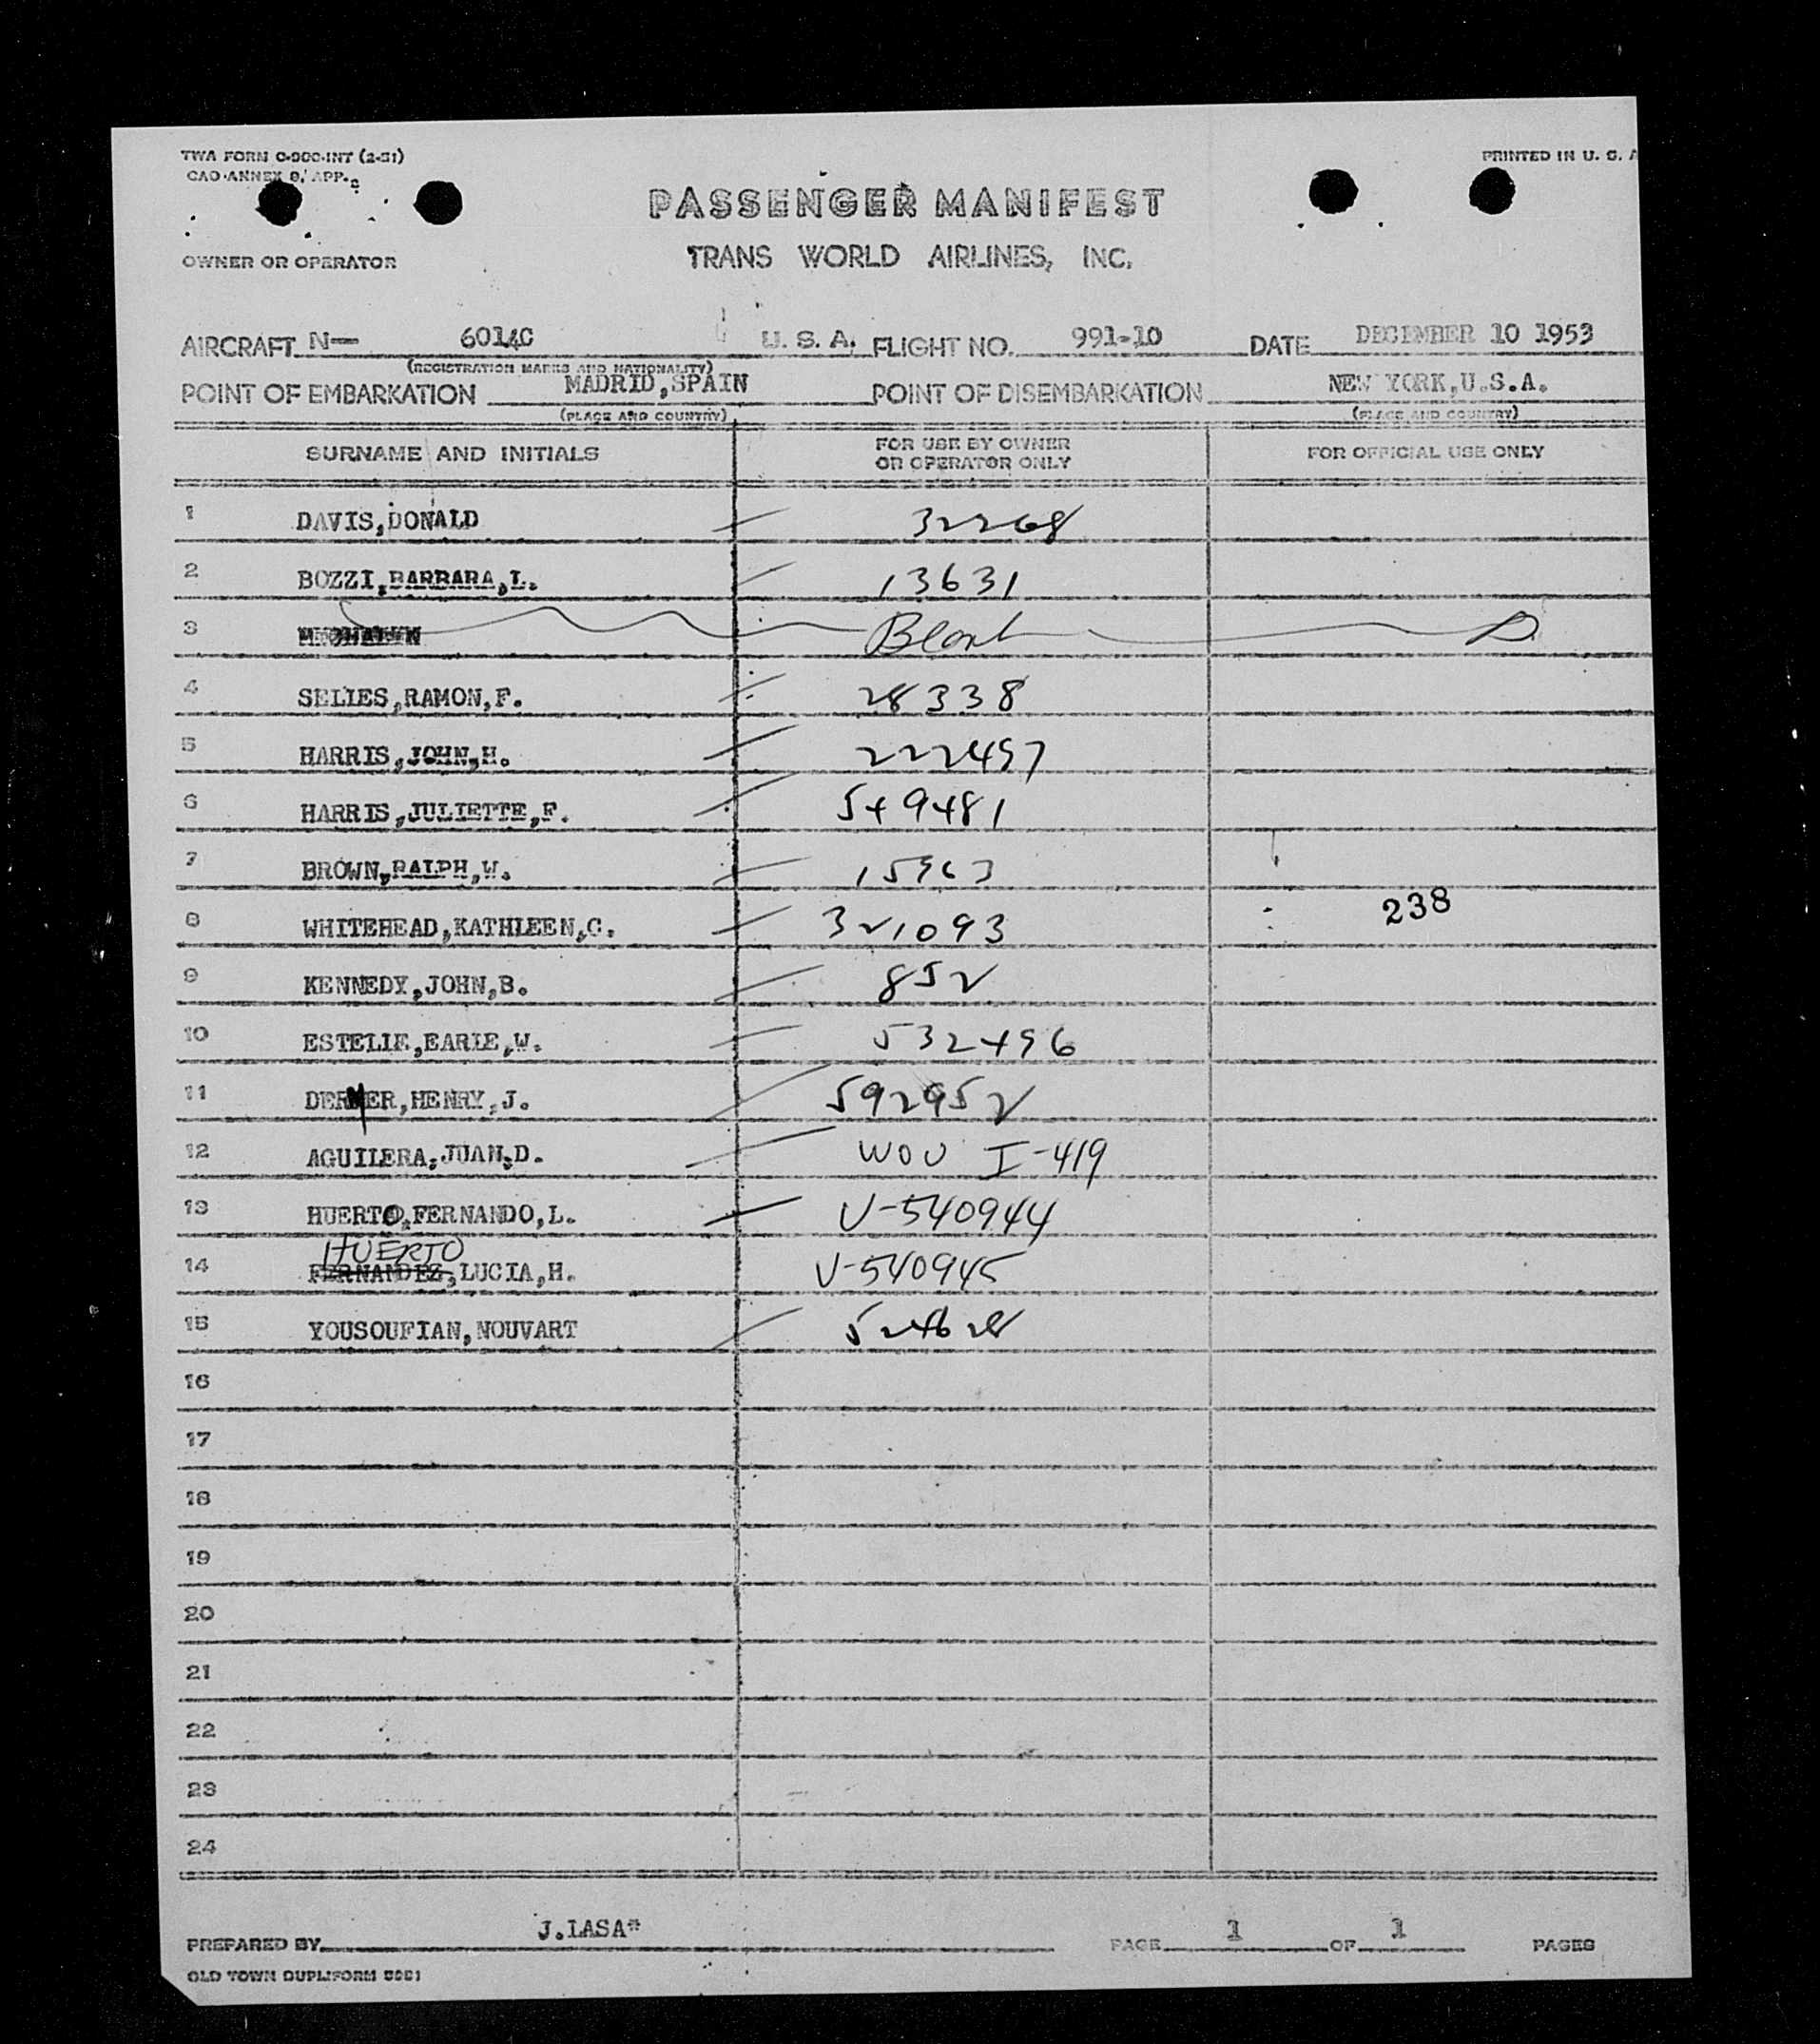 TWA FORM C-900-INT (2-51)
PRINTED IN U. S. A
CAO ANNEX 9, APP.
PASSENGER MANIFEST
OWNER OR OPERATOR
TRANS WORLD AIRLINES, INC.
AIRCRAFT N— 6014C U. S. A. FLIGHT NO. 991-10 DATE DECEMBER 10 1953
(REGISTRATION MARKS AND NATIONALITY)
POINT OF EMBARKATION MADRID,SPAIN POINT OF DISEMBARKATION NEW YORK,U.S.A.
(PLACE AND COUNTRY) (PLACE AND COUNTRY)
SURNAME AND INITIALS FOR USE BY OWNER OR OPERATOR ONLY FOR OFFICIAL USE ONLY
1 DAVIS,DONALD 32268
2 BOZZI,BARBARA,L. 13631
3 Blank
4 SELLES,RAMON,F. 28338
5 HARRIS,JOHN,H. 222457
6 HARRIS,JULIETTE,F. 549481
7 BROWN,RALPH,W. 15963
8 WHITEHEAD,KATHLEEN,C. 321093 238
9 KENNEDY,JOHN,B. 852
10 ESTELLE,EARLE,W. 532496
11 DERMER,HENRY,J. 592952
12 AGUILERA,JUAN,D. WOU I-419
13 HUERTO,FERNANDO,L. V-540944
HUERTO
14 FERNANDEZ,LUCIA,H. V-540945
15 YOUSOUFIAN,NOUVART 524628
16
17
18
19
20
21
22
23
24
PREPARED BY J.LASA* PAGE 1 OF 1 PAGES
OLD TOWN DUPLIFORM